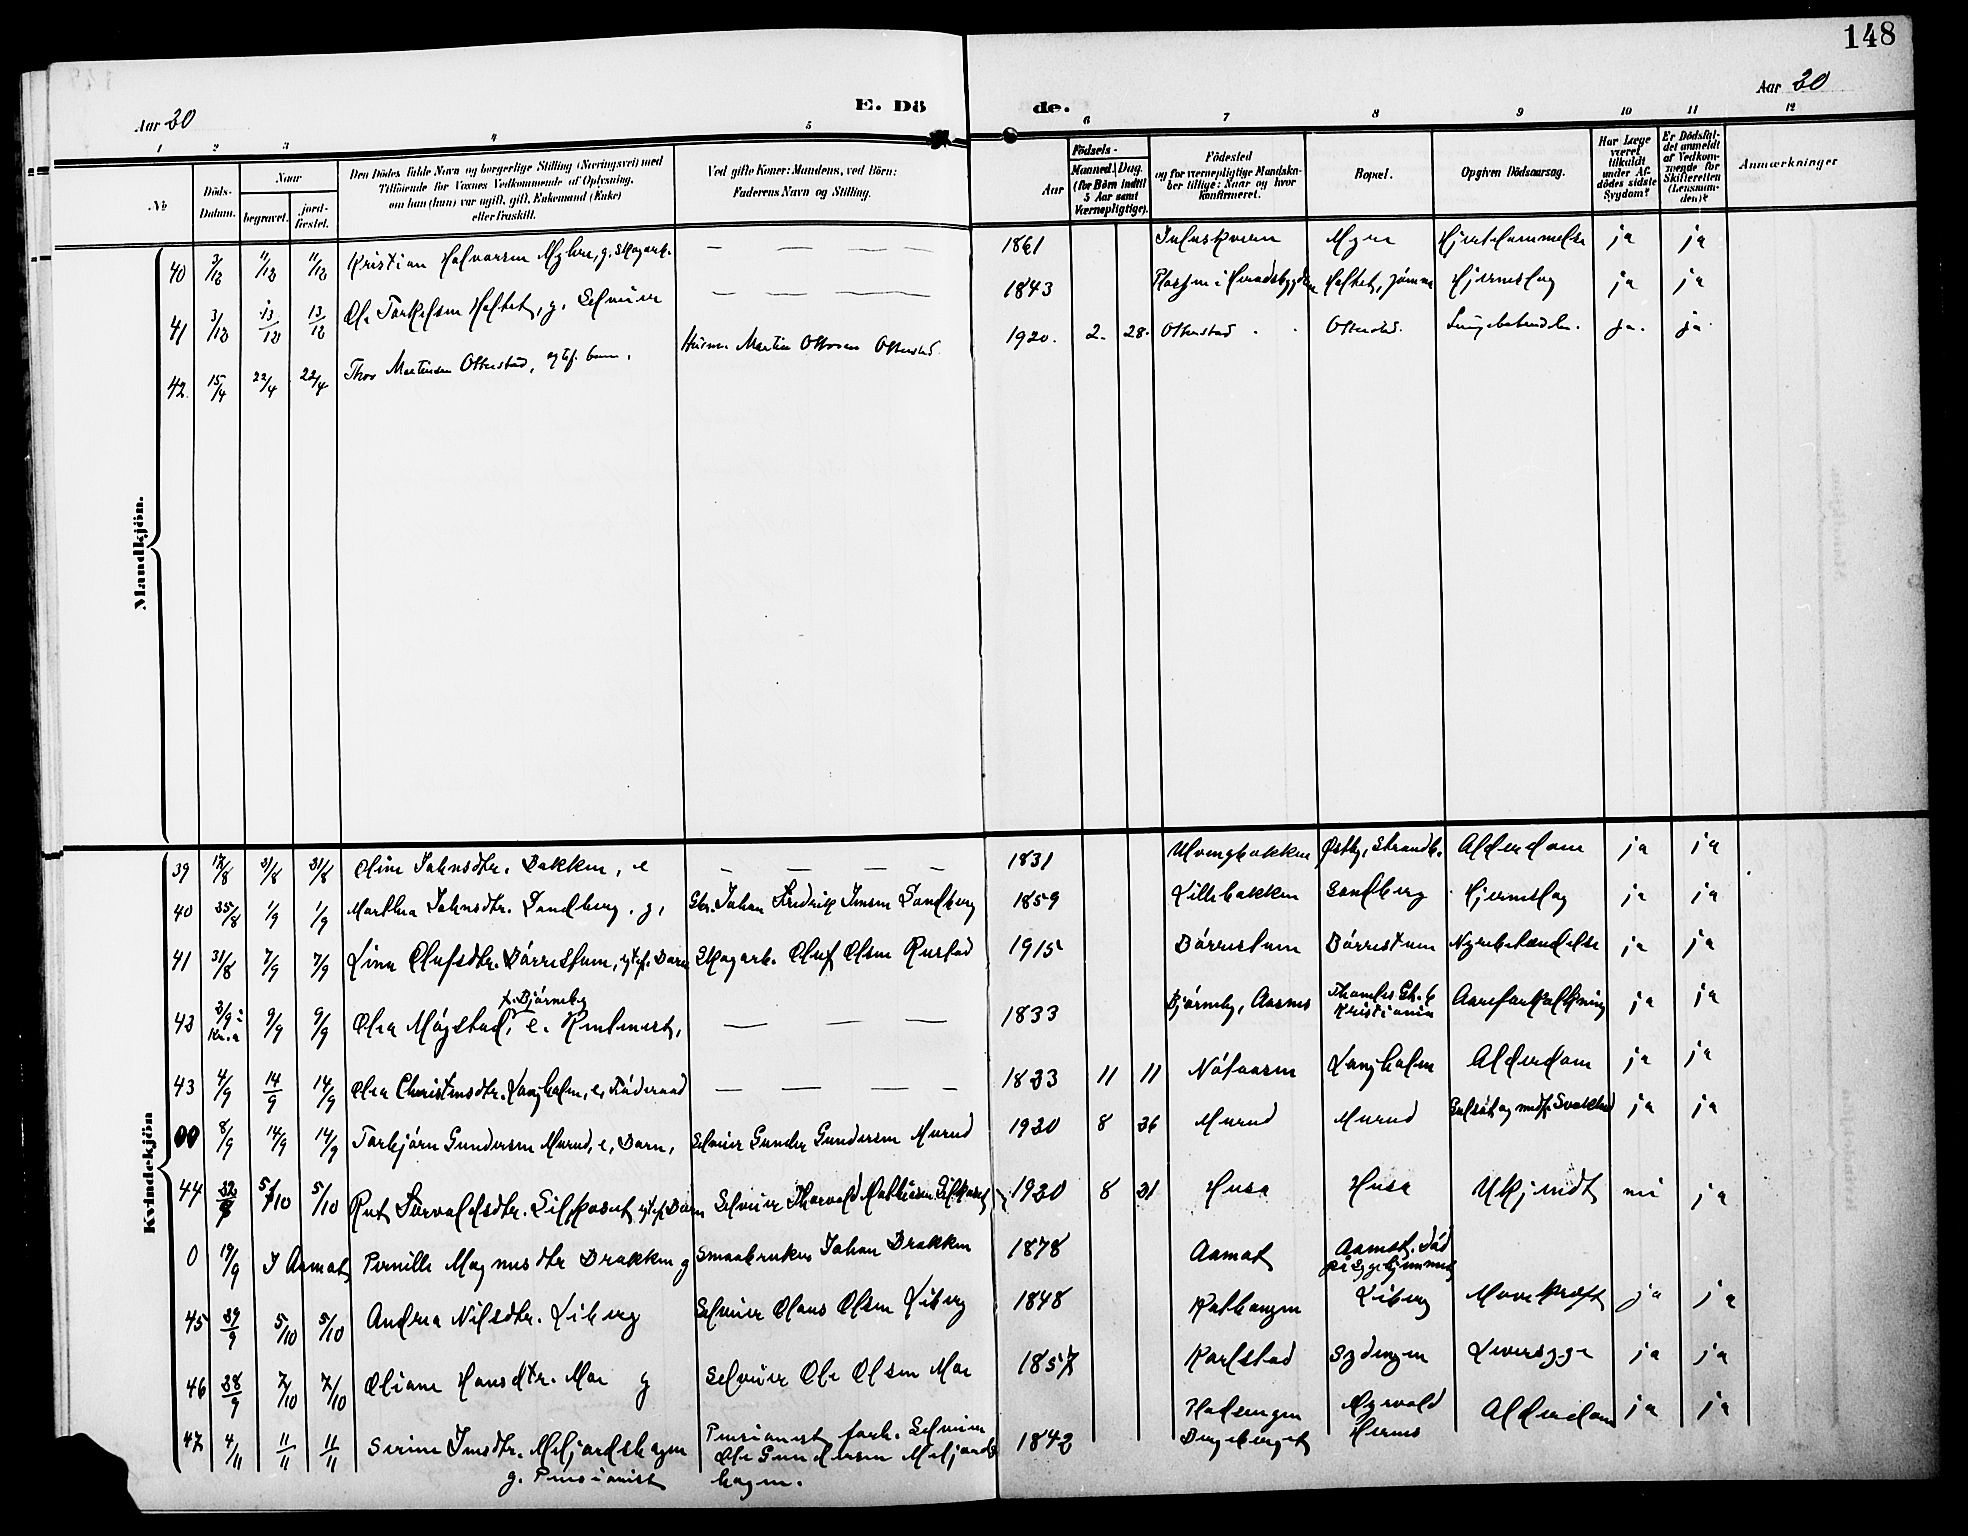 148
Aar 20
E. Dö
de.
Aar 20
1 2 3 4 5 6 7 8 9 10 11 12
No
Döds-
Datum.
Naar
begravet.
jord-
fæstet.
Den Dödes fulde Navn og borgerlige Stilling (Næringsvei) med
Tilföiende for Voxnes Vedkommende af Oplysning,
om han (hun) var ugift, gift, Enkemand (Enke)
eller fraskilt.
Ved gifte Koner: Mandens, ved Börn:
Faderens Navn og Stilling.
Aar
Födsels-
Maaned. Dag.
(for Börn indtil
5 Aar samt
Værnepligtige).
Födested
og for værnepligtige Mandska-
ber tillige: Naar og hvor
konfirmeret.
Bopæl.
Opgiven Dödsaarsag.
Har Læge
været
tilkaldt
under Af-
dödes sidste
Sygdom?
Er Dödsfal-
det anmeldt
af Vedkom-
mende for
Skifteretten
(Lensman-
den)?
Anmærkninger
Mandkjön.
40 3/12 11/12 11/12 Kristian Halvorsen Myhre, g. Skogarb. — — — — 1861 Juluskvern Myre Hjertelammelse ja ja
41 3/12 13/12 13/12 Ole Torkelsen Holtet, g. Selveier — — — — 1843 i Holtet, Jømna Hjerneslag ja ja
42 15/4 22/4 22/4 Thor Martinsen Otterstad, egtef. barn. Martin Ottosen Otterstad 1920. 2. 28. Otterstad Otterstad. ja. ja.
Kvindekjön
39 17/8 21/8 21/8 Oline Johnsdtr. Bakken, e — — — — 1831 Ulvengbakken Østby, Strandb. Alderdom ja ja
40 25/8 1/9 1/9 Marthea Johnsdtr. Sandberg. g, Gbr. Johan Fredrik Jensen Sandberg 1859 Lillebakken Sandberg Hjerneslag ja ja
41 31/8 7/9 7/9 Lina Olufsdtr. Børrestuen, egtef. Barn Skogarb. Oluf Olsen Rustad 1915 Børrestuen Børrestuen Nyrebetændelse ja ja
42 3/9 i Kr.a 9/9 9/9 Olea Møystad, f. Bjørneby e. Rentenist, — — — 1833 Bjørneby, Aasnes Thomles Gt. 6 Kristiania Aareforkalkning ja ja
43 4/9 14/9 14/9 Olea Christensdtr. Langholen, e. Föderaad — — — — 1833 11 11 Nøtaasen Langholen Alderdom ja ja
00 8/9 14/9 14/9 Torbjørn Gundersen Murud, e, Barn, Selveier Gunder Gundersen Murud 1920 8 26 Murud Murud Gulsot og medf. Svakhed ja ja
44 5/10 5/10 Rut Torvaldsdtr. Silkoset egtef. Barn Selveier Thorvald Mathisen Silkoset 1920 8 31 Husa Husa Ukjendt nei ja
0 19/9 I Aamot Pernille Magnusdtr Brakken g Smaabruker Johan Brakken 1878 Aamot Aamot. Död
45 29/9 5/10 5/10 Andrea Nilsdtr. Liberg Selveier Olaus Olsen Liberg 1848 Liberg Mavekræft ja ja
46 28/9 7/10 7/10 Oliane Hansdtr. Moe g Selveier Ole Olsen Moe 1857 Karlstad Sydengen Leversyge ja ja
47 4/11 11/11 11/11 Serine Jensdtr. Meljordshagen Pensionist forh. Selveier 1842 Alderdom ja ja
g. Pensionist Ole Gundersen Meljords
hagen.